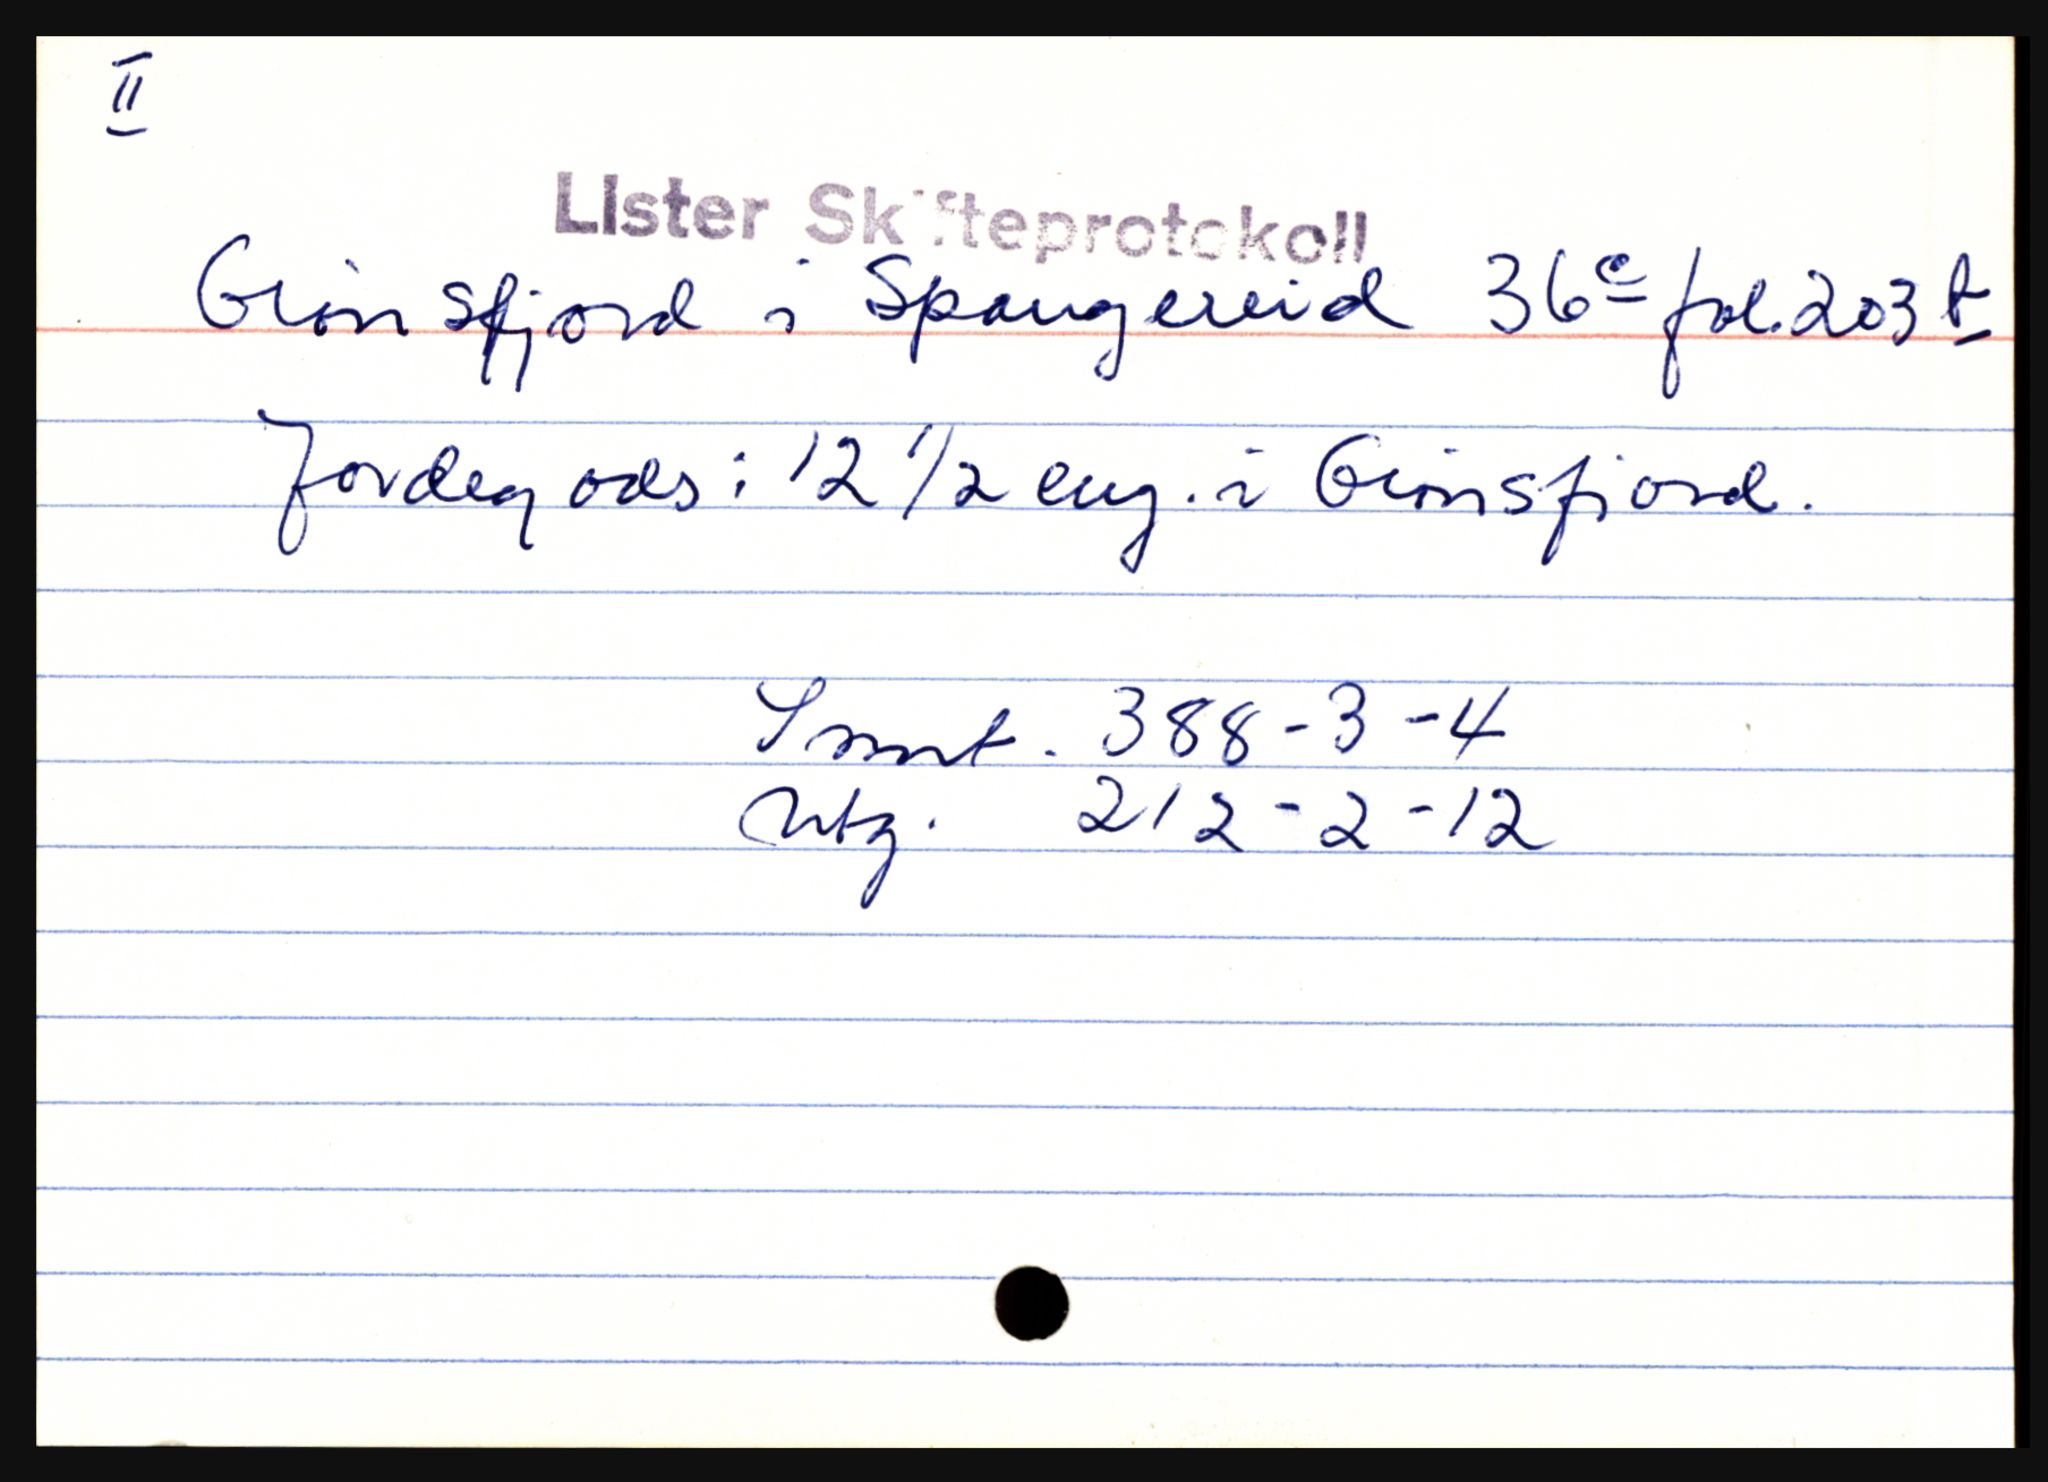 II
Lister Skifteprotokoll
Grønsfjord i Spangereid 36c fol. 203 b
Jordegods: 12 1/2 eng. i Grønsfjord.
Smst. 388-3-4
Utg. 212-2-12